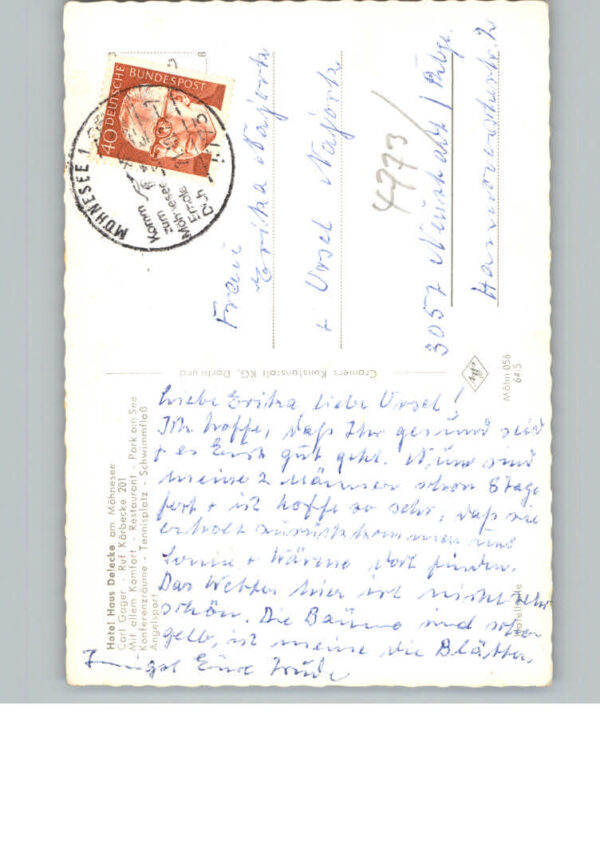 Hotel Haus Delecke am Möhnesee
Carl Gager - Ruf Körbecke 201
Mit allem Komfort - Restaurant - Park am See
Konferenzräume - Tennisplatz - Schwimmfloß
Angelsport
Liebe Erika, liebe Ursel!
Ich hoffe, daß Ihr gesund seid
+ es Euch gut geht. Nun sind
meine 2 Männer schon 8 Tage
fort + ich hoffe so sehr, daß sie
erholt zurückkommen und
Sonne + Wärme dort finden.
Das Wetter hier ist nicht sehr
schön. Die Bäume sind schon
gelb, ich meine die Blätter.
Eure Trude
Cramers Kunstanstalt KG, Dortmund
Möhn 056
64/5
DEUTSCHE BUNDESPOST
40
MÖHNESEE 1
Komm
zum
Möhnesee
Erhole
Dich
Frau
Erika Najorka
+ Ursel Najorka
4773/
3057 Neustadt / Rbge.
Hannoverschestr. 2